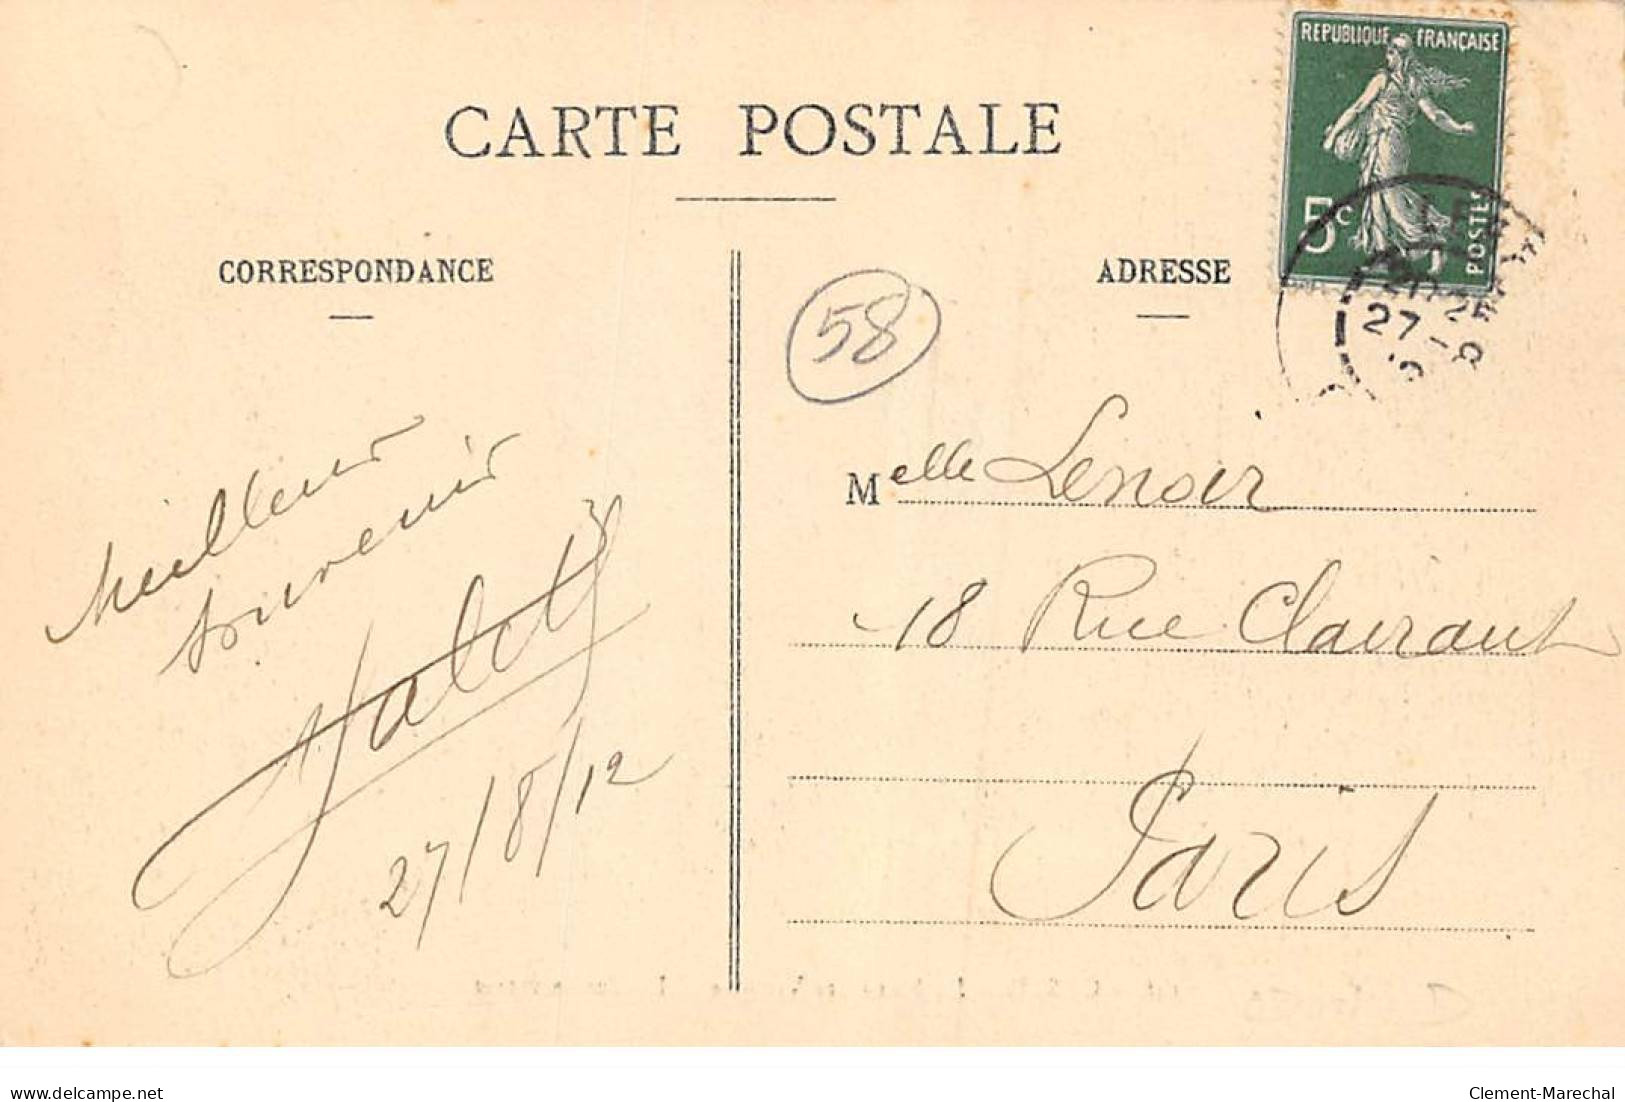 REPUBLIQUE FRANÇAISE
5c
POSTES
CARTE POSTALE
CORRESPONDANCE
ADRESSE
27-8
58
Meilleur
souvenir
27/8/12
Melle Lenoir
18 Rue Clairaut
Paris
delcampe.net
Clement-Marechal